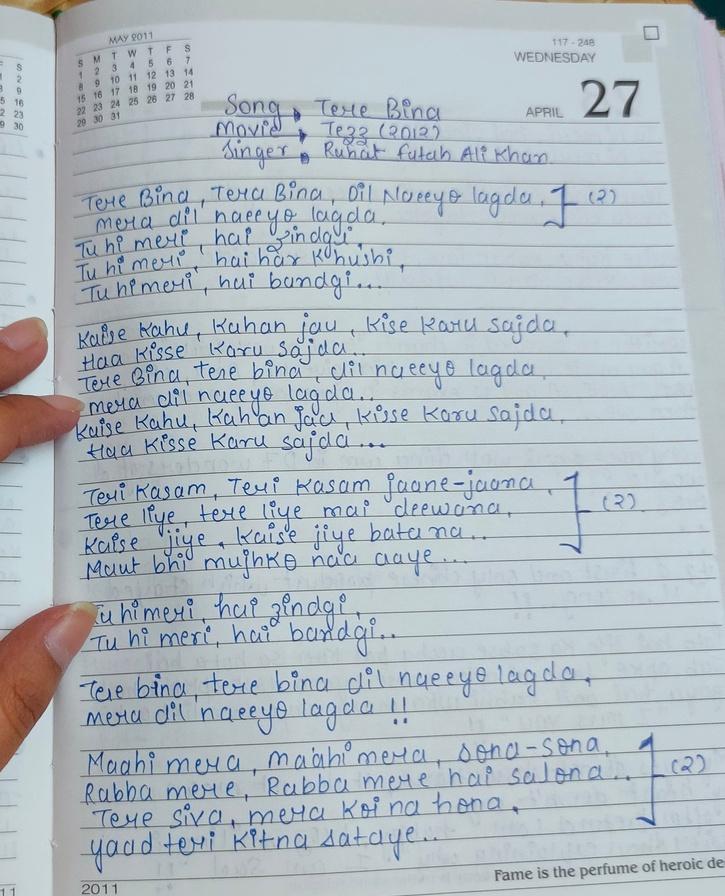 MAY 2011
S M T W T F S
1 2 3 4 5 6 7
8 9 10 11 12 13 14
15 16 17 18 19 20 21
22 23 24 25 26 27 28
29 30 31
117 - 248
WEDNESDAY
APRIL 27
Song Tere Bina
Movie Tezz (2012)
Singer Rahat Futah Ali Khan
Tere Bina, Tera Bina, Dil Naeeyo lagda. (2)
mera dil naeeyo lagda.
Tu hi meri, hai zindgi,
Tu hi meri, hai har Khushi,
Tu hi meri, hai bandgi...
Kaise Kahu, Kahan jau, Kise Karu sajda,
Haa Kisse Karu Sajda..
Tere Bina, tere bina, dil naeeyo lagda.
mera dil naeeyo lagda..
Kaise Kahu, Kahan jau, Kisse Karu sajda,
Haa Kisse Karu sajda...
Teri Kasam, Teri Kasam jaane-jaana, (2)
Tere liye, tere liye mai deewana,
Kaise jiye, Kaise jiye batana..
Maut bhi mujhko naa aaye...
Tu hi meri, hai zindgi,
Tu hi meri, hai bandgi..
Tere bina, tere bina dil naeeyo lagda,
mera dil naeeyo lagda !!
Maahi mera, maahi mera, sona-sona, (2)
Rabba mere, Rabba mere hai salona..
Tere siva, mera koi na hona,
yaad teri kitna sataye..
Fame is the perfume of heroic de
2011